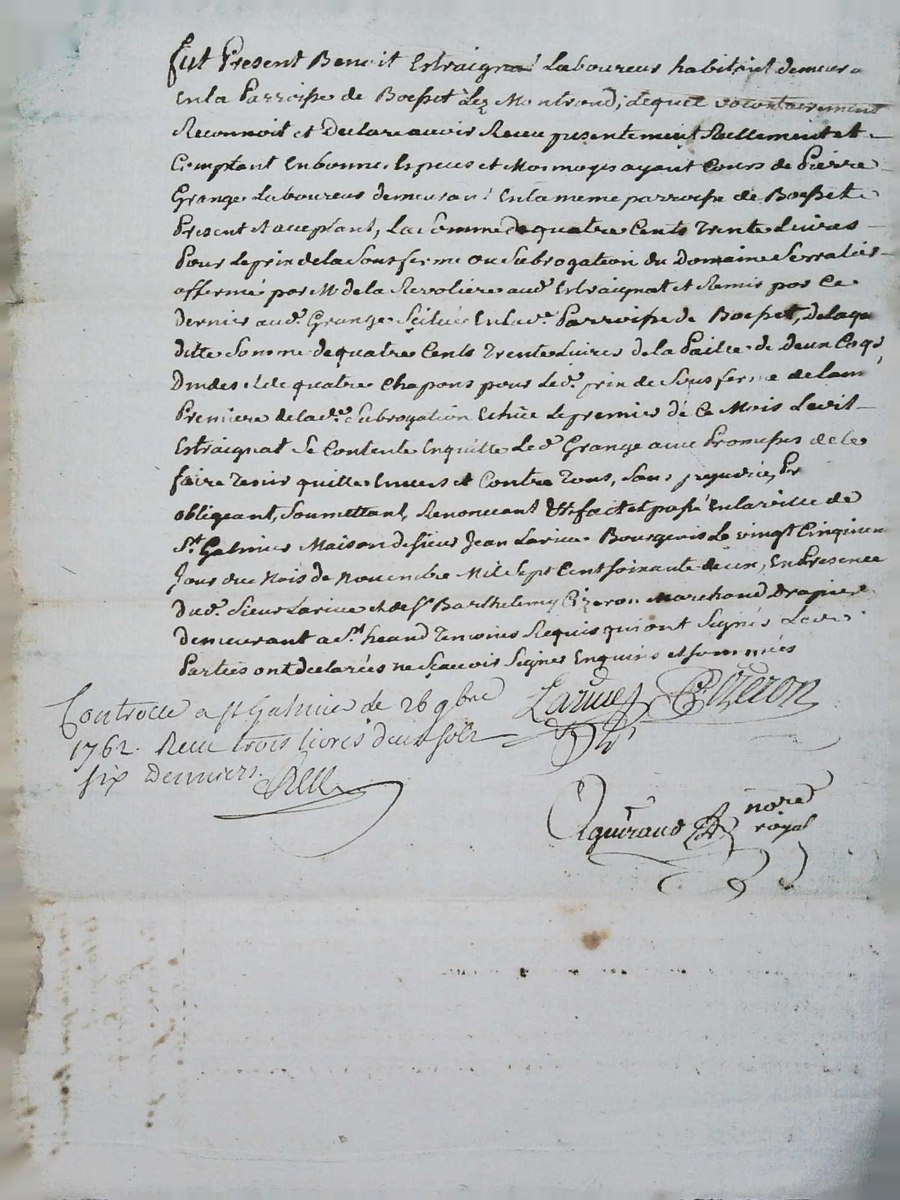 fut Present Benoit Estraignat Laboureur habitant demeura
En la Parroisse de Boësset Lez Montrond, Lequel volontairement
Reconnoit et declare avoir Receu presentement Reellement et
Comptant En bonnes Especes et Monnoyes ayant Cours de Pierre
Grange Laboureur demeurant En la meme parroisse de Boesset
Present et acceptant, La somme de quatre Cents Trente Livres
Pour Le prix de la Sousferme ou Subrogation du Domaine
affermé par Mr de la Revoliere aud. Estraignat et Remis par Ce
dernier aud. Grange Scitué En lad.e Parroisse de Boesset, de laqu
ditte Somme de quatre Cents Trente Livres de la Paille de deux Coqs
Dindes et de quatre Chapons pour Led. prix de Sousferme de lann
Premiere de lad.e Subrogation Echüe Le premier de Ce Mois Led.
Estraignat Se Contente En quitte Le d. Grange avec Promesses de le
faire Tenir quitte Envers et Contre Tous, Sans prejudice,
obligeant, Soumettant, Renonceant &c fact et passé En la ville de
St. Galmier Maison de sieur Jean Larive Bourgeois Le vingt Cinquiem
Jour du Mois de Novembre Mil Sept Cent soixante deux, En Presence
dud. Sieur Larive et de Sr Barthelemy Cizeron Marchand Drapier
demeurant a St. heand Temoins Requis qui ont Signés Lesd.
Parties ont declarées ne Scavoir Signer Enquises et sommées
Larive Cizeron
Controllé a st Galmier le 26 9bre
1762. Receu trois livres deux sols
six Deniers.
Aguiraud nore
royal